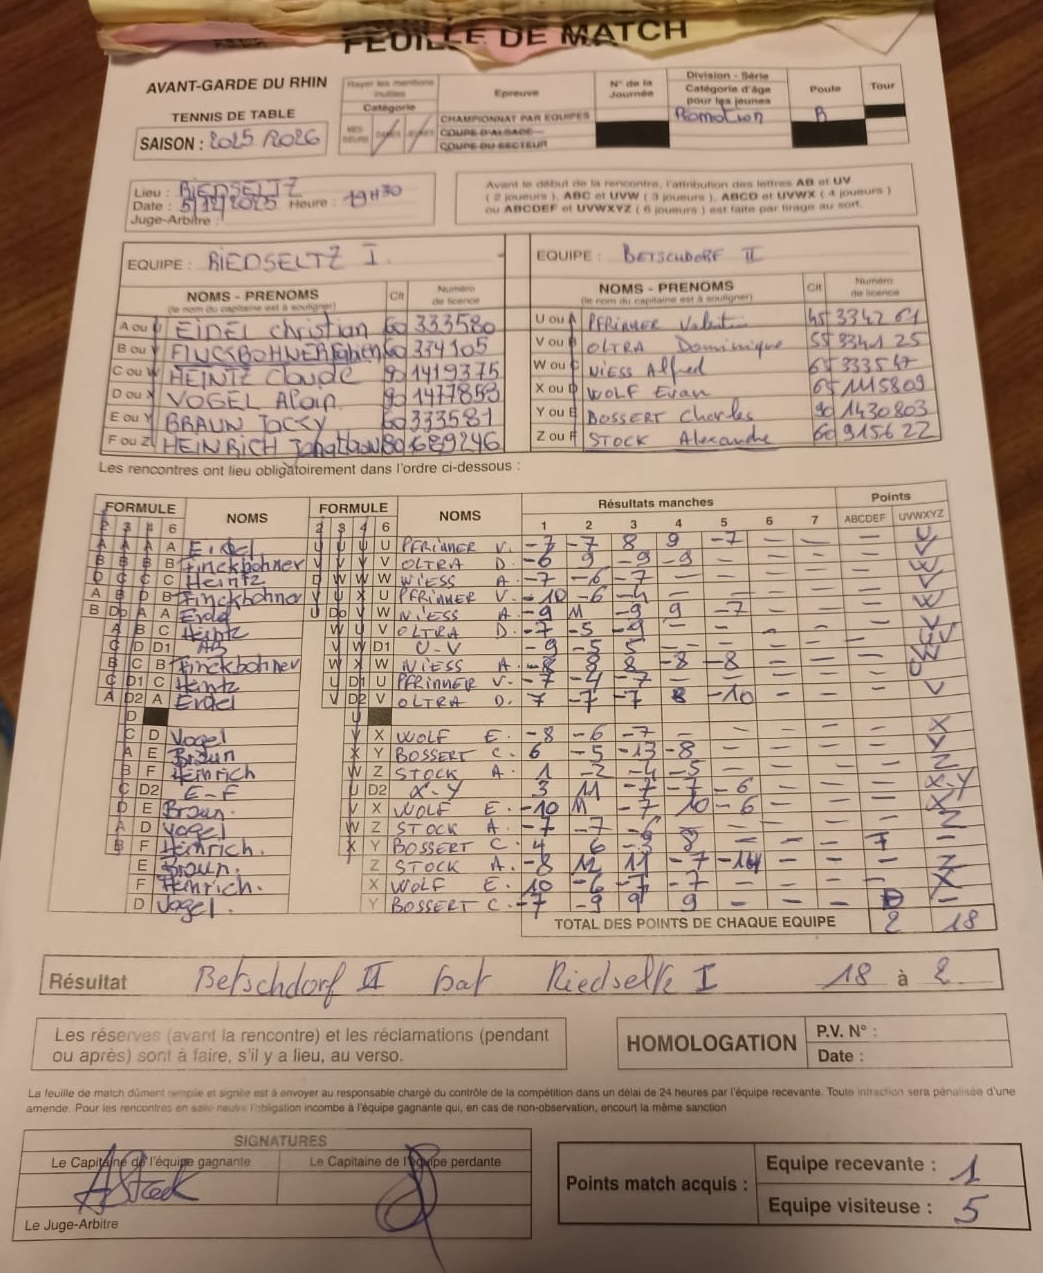 FEUILLE DE MATCH
AVANT-GARDE DU RHIN
TENNIS DE TABLE
SAISON : 2025 / 2026
Rayer les mentions inutiles
Catégorie
Epreuve
N° de la Journée
Division - Série
Catégorie d'âge pour les jeunes
Poule
Tour
CHAMPIONNAT PAR EQUIPES
COUPE D'ALSACE
COUPE DU SECTEUR
Promotion
B
Lieu : RIEDSELTZ
Date : 5/12/2025 Heure : 19H30
Juge-Arbitre :
Avant le début de la rencontre, l'attribution des lettres AB et UV
( 2 joueurs ), ABC et UVW ( 3 joueurs ), ABCD et UVWX ( 4 joueurs )
ou ABCDEF et UVWXYZ ( 6 joueurs ) est faite par tirage au sort.
EQUIPE : RIEDSELTZ I
EQUIPE : BETSCHDORF II
NOMS - PRENOMS Clt Numéro de licence
(le nom du capitaine est à souligner)
NOMS - PRENOMS Clt Numéro de licence
(le nom du capitaine est à souligner)
A ou U EIDEL Christian 60 333580
B ou V Fabien 60 334105
C ou W HEINTZ Claude 90 1419375
D ou X VOGEL Alain 90 1477853
E ou Y BRAUN Jacky 60 333581
F ou Z HEINRICH Jonathan 80 689246
U ou A PFRIMMER Valentin 45 334261
V ou B OLTRA Dominique 55 334125
W ou C WIESS Alfred 65 333547
X ou D WOLF Evan 65 1115809
Y ou E BOSSERT Charles 90 1430803
Z ou F STOCK Alexandre 60 915622
Les rencontres ont lieu obligatoirement dans l'ordre ci-dessous :
FORMULE NOMS FORMULE NOMS Résultats manches Points
2 3 4 6 2 3 4 6 1 2 3 4 5 6 7 ABCDEF UVWXYZ
A A A A Eidel U U U U PFRIMMER V. -7 -7 8 9 -7 — — U
B B B B Finckbohner V V V V OLTRA D. -6 9 -9 -9 — — — V
D C C C Heintz D W W W WIESS A. -7 -6 -7 — — — — W
A B D B Finckbohner V U X U PFRIMMER V. -10 -6 -4 — — — —
B Do A A Eidel U Do V W WIESS A. -9 11 -9 9 -7 — — — W
A B C Heintz W U V OLTRA D. -7 -5 -9 — — — —
C D D1 AB V W D1 U-V -9 -5 5 — — — —
B C B Finckbohner W X W WIESS A. -8 8 8 -8 -8 — — W
C D1 C Heintz U D1 U PFRIMMER V. -7 -4 -7 — — — —
A D2 A Eidel V D2 V OLTRA D. 7 -7 -7 8 -10 — — — V
D U
C D Vogel V X WOLF E. -8 -6 -7 — — — — — X
A E Braun X Y BOSSERT C. 6 -5 -13 -8 — — — — Y
B F Heinrich W Z STOCK A. 1 -2 -4 -5 — — — — Z
C D2 E-F U D2 X-Y 3 11 -7 -7 -6 — — — X-Y
D E Braun V X WOLF E. -10 11 -7 10 -6 — — — X
A D Vogel W Z STOCK A. -7 -7 -6 — — — — — Z
B F Heinrich. X Y BOSSERT C. 4 6 -9 8 — — — F —
E Braun. Z STOCK A. -8 12 11 -7 -14 — — — Z
F Heinrich. X WOLF E. 10 -6 -7 -7 — — — — X
D Vogel. Y BOSSERT C. -7 -9 9 9 — — — D —
TOTAL DES POINTS DE CHAQUE EQUIPE 2 18
Résultat Betschdorf II bat Riedseltz I 18 à 2
Les réserves (avant la rencontre) et les réclamations (pendant
ou après) sont à faire, s'il y a lieu, au verso.
HOMOLOGATION
P.V. N° :
Date :
La feuille de match dûment remplie et signée est à envoyer au responsable chargé du contrôle de la compétition dans un délai de 24 heures par l'équipe recevante. Toute infraction sera pénalisée d'une
amende. Pour les rencontres en salle neutre l'obligation incombe à l'équipe gagnante qui, en cas de non-observation, encourt la même sanction
SIGNATURES
Le Capitaine de l'équipe gagnante
Le Capitaine de l'équipe perdante
AStock
Le Juge-Arbitre
Points match acquis :
Equipe recevante : 1
Equipe visiteuse : 5